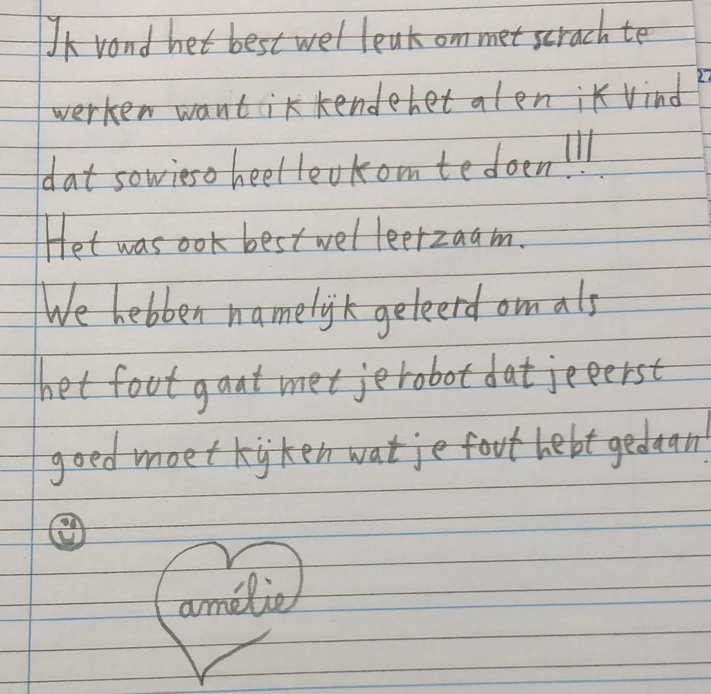 Ik vond het best wel leuk om met scrach te
werken want ik kende het al en ik vind
dat sowieso heel leuk om te doen!!!
Het was ook best wel leerzaam.
We hebben namelijk geleerd om als
het fout gaat met je robot dat je eerst
goed moet kijken wat je fout hebt gedaan!
amélie